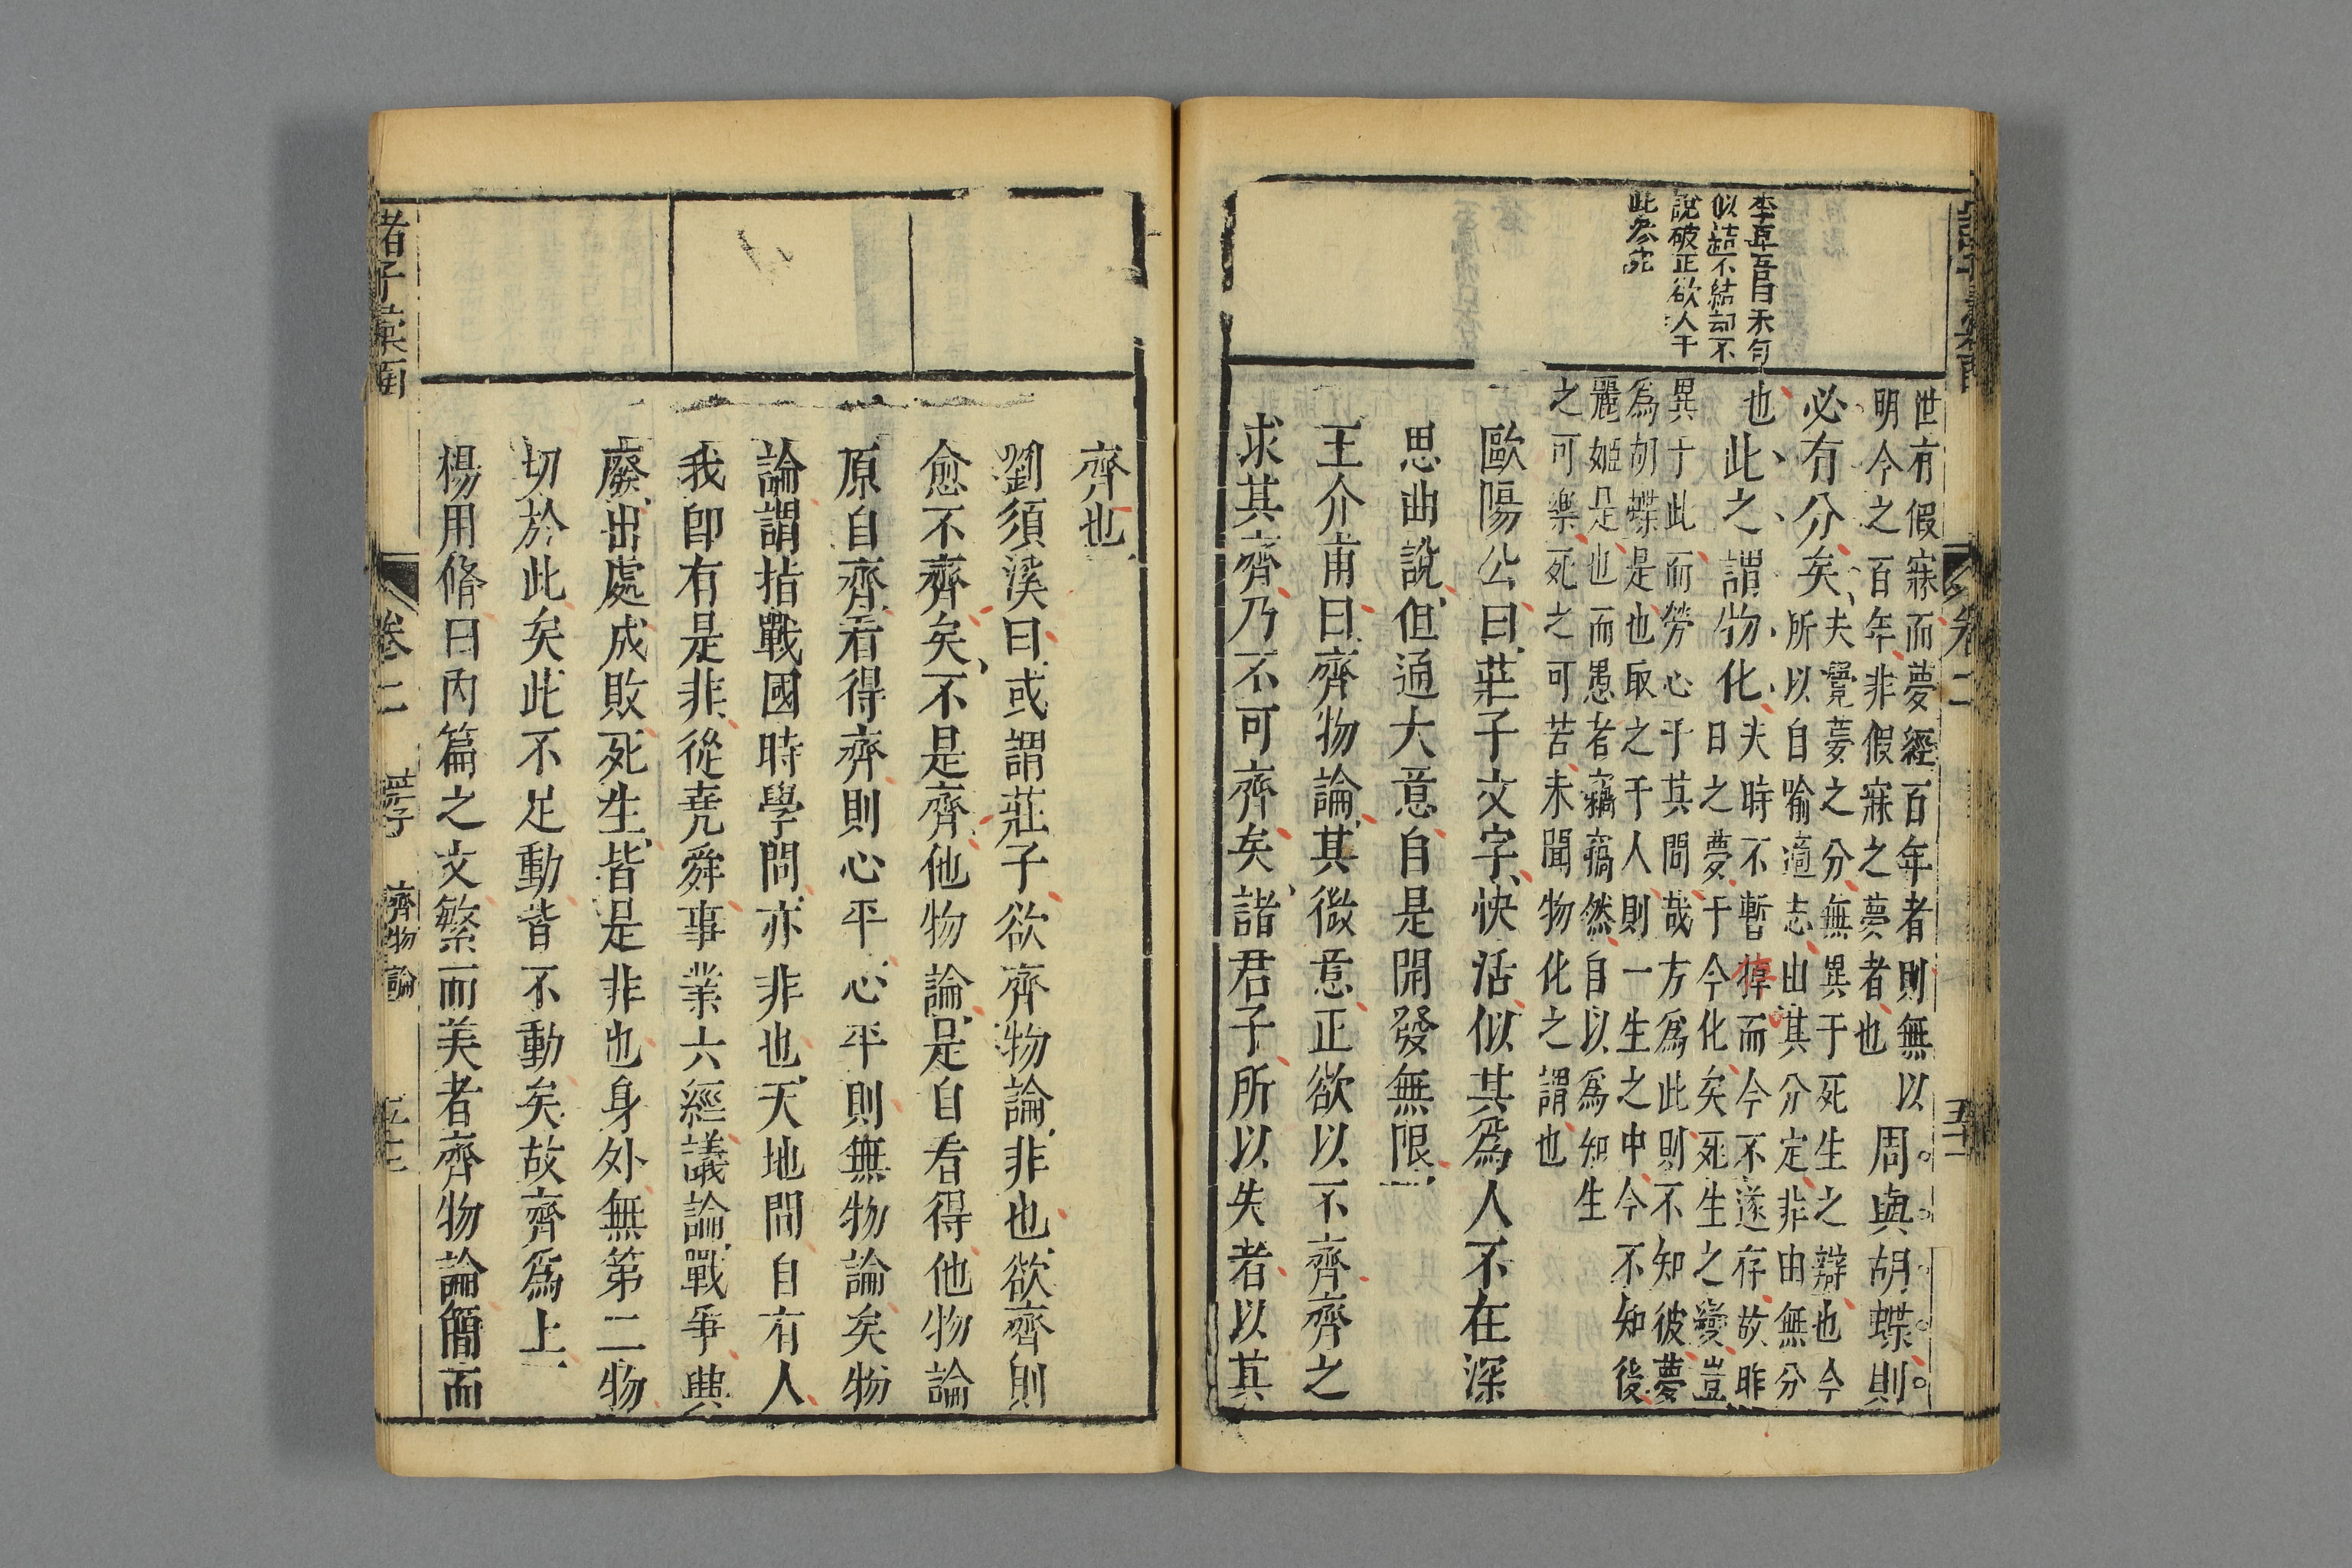 世有假寐而夢經百年者則無以
明今之百年非假寐之夢者也
周與胡蝶則
必有分矣
夫覺夢之分無異于死生之辯也今
所以自喻適志由其分定非由無分
也此之謂物化
夫時不暫停而今不遂存故昨
日之夢于今化矣死生之變豈
異于此而勞心于其間哉方爲此則不知彼夢
爲胡蝶是也取之于人則一生之中今不知後
麗姬是也而愚者竊竊然自以爲知生
之可樂死之可苦未聞物化之謂也
歐陽公曰莊子文字快活似其爲人不在深
思曲說但通大意自是開發無限
王介甫曰齊物論其微意正欲以不齊齊之
求其齊乃不可齊矣諸君子所以失者以其
似結不結却不
說破正欲人于
此參究
齊也
劉須溪曰或謂莊子欲齊物論非也欲齊則
愈不齊矣不是齊他物論是自看得他物論
原自齊看得齊則心平心平則無物論矣物
論謂指戰國時學問亦非也天地間自有人
我卽有是非從堯舜事業六經議論戰爭典
廢出處成敗死生皆是非也身外無第二物
切於此矣此不足動皆不動矣故齊爲上
楊用脩曰內篇之文繁而美者齊物論簡而
諸子彙函
卷二
莊子
齊物論